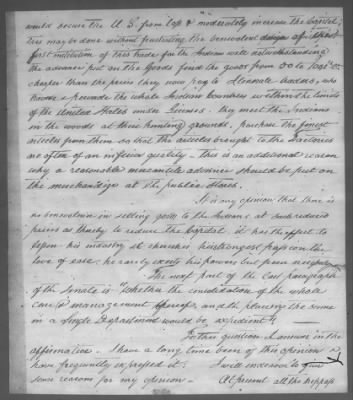 would secure the U.S. from loss & moderately increase the Capital,
this may be done without frustrating the benevolent design of
first institution of this trade for the Indian will notwithstanding
the advance put on the goods find the goods from 50 to 100 P Ct
cheaper than the prices they now pay to traders, who
travels & pervade the whole Indian Country within the limits
of the United States under Licenses. they meet the Indians
in the woods at their hunting grounds, purchase the finest
articles from them so that the articles brought to the Factories
are often of an inferior quality - this is an additional reason
why a reasonable mercantile advance should be put on
the merchandize at the public Stores.
It is my opinion that there is
no benevolence in selling goods to the Indians at such reduced
prices as thereby to reduce the Capital, it has the effect to
lessen his industry it cherishes his strongest passion the
love of ease. he rarely exerts his powers but from necessity
The next part of the last paragraph
of the Senate is "Whether the consolidation of the whole
care & management thereof, and the placing the same
in a single Department would be expedient"? —
To this question I answer in the
affirmative. I have a long time been of this opinion &
have frequently expressed it: I will endeavor to give
some reasons for my opinion - At present all the